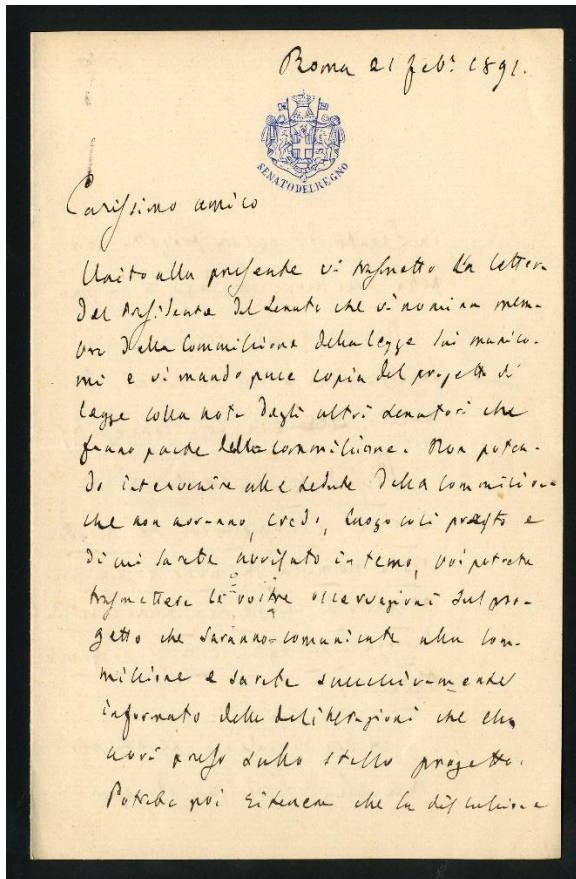 Roma 21 feb. 1891.
SENATO DEL REGNO
Carissimo amico
Unito alla presente vi trasmetto la lettera
del Presidente del Senato che vi nomina mem-
bro della Commissione della legge sui manico-
mi e vi mando pure copia del progetto di
legge colla nota degli altri Senatori che
fanno parte della commissione. Non poten-
do intervenire alle sedute della Commissione
che non avranno, credo, luogo così presto e
di cui sarete avvisato in temo, voi potrete
trasmettere le vostre osservazioni sul pro-
getto che saranno comunicate alla Com-
missione e sarete successivamente
informato delle deliberazioni che ella
avrà preso sullo stesso progetto.
Potrete poi ritenere che la discussione